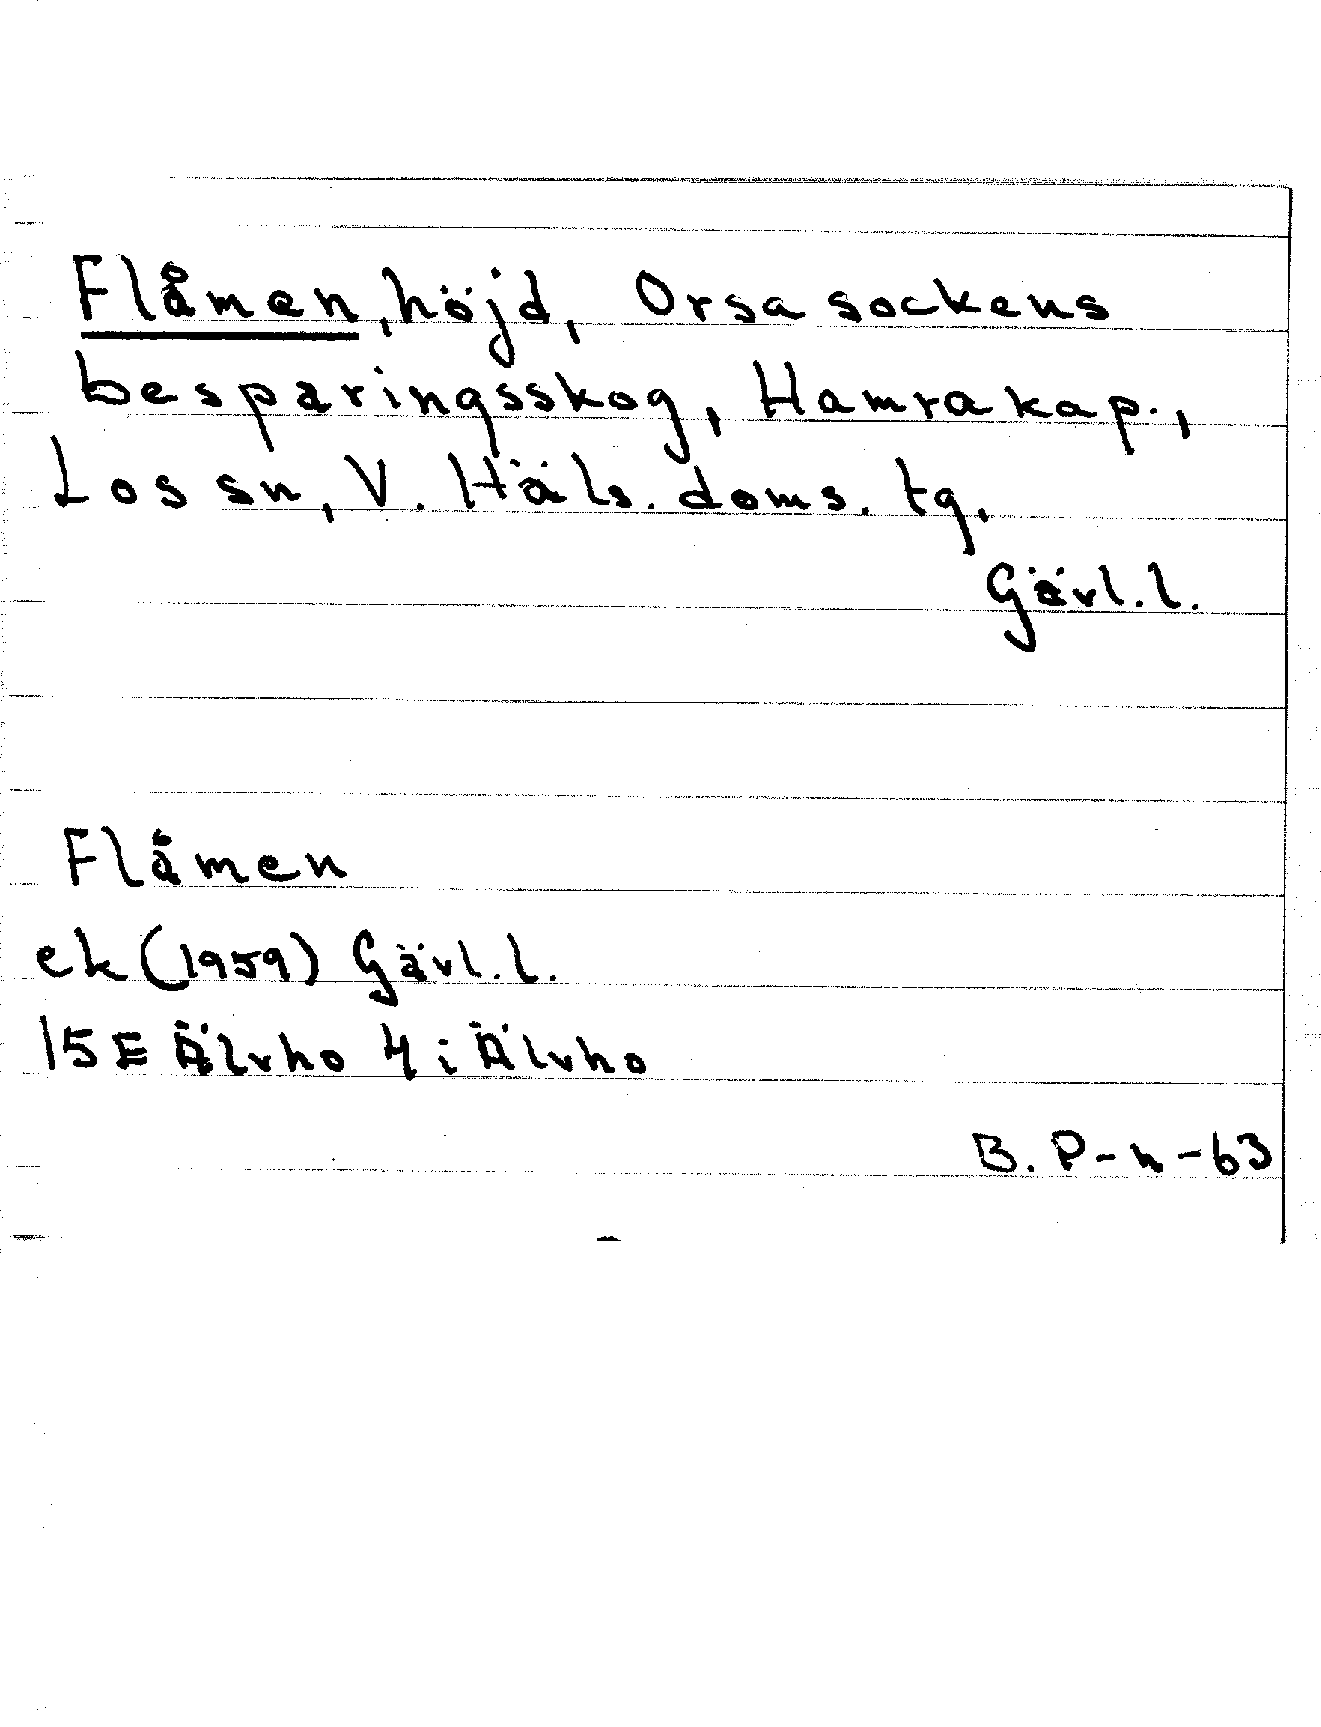 Flåmen, höjd, Orsa sockens
besparingsskog, Hamra kap.,
Los sn, V. Häls. doms. tg.
Gävl. l.
Flåmen
ek (1959) Gävl. l.
15E Älvho 4i Älvho
B. P-n -63